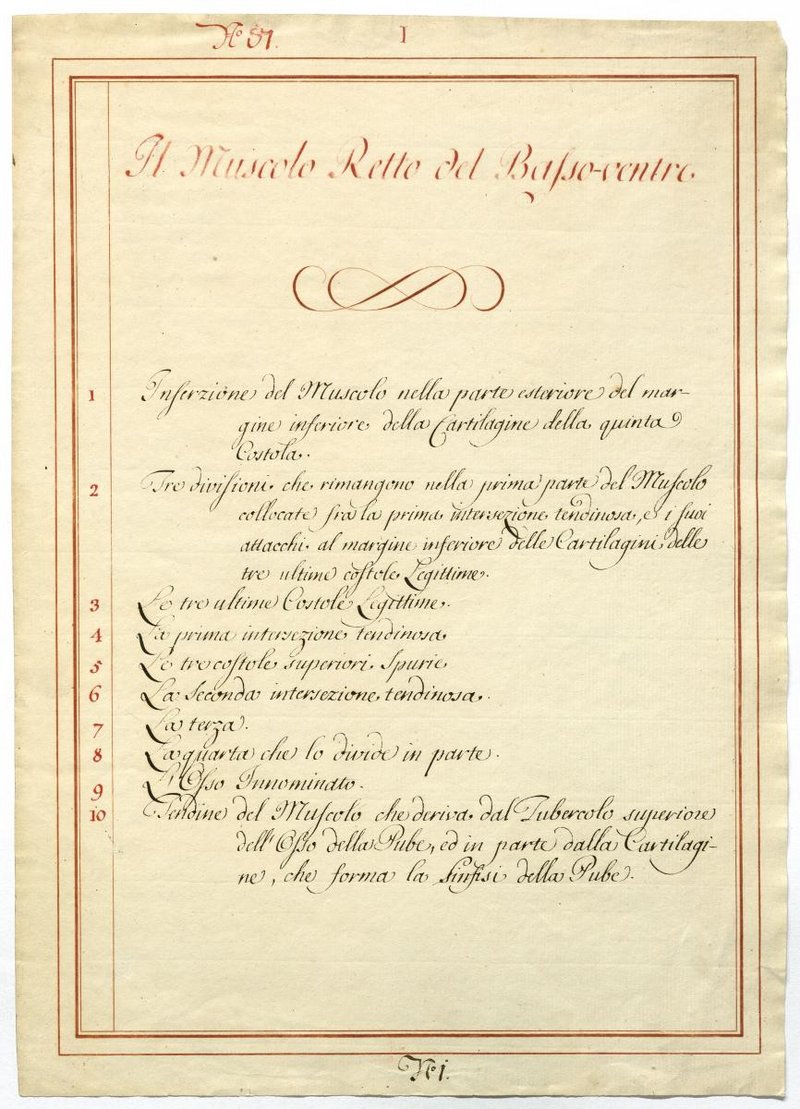 No. 51.
I
Il Muscolo Retto del Basso-ventre.
1 Inserzione del Muscolo nella parte esteriore del mar-
gine inferiore della Cartilagine della quinta
Costola.
2 Tre divisioni, che rimangono nella prima parte del Muscolo
collocate fra la prima intersezione tendinosa, e i suoi
attacchi al margine inferiore delle Cartilagini delle
tre ultime costole Legittime.
3 Le tre ultime Costole Legittime.
4 La prima intersezione tendinosa
5 Le tre costole superiori Spurie
6 La Seconda intersezione tendinosa.
7 La terza.
8 La quarta che lo divide in parte.
9 L'Osso Innominato.
10 Tendine del Muscolo che deriva dal Tubercolo superiore
dell'Osso della Pube, ed in parte dalla Cartilagi-
ne, che forma la sinfisi della Pube.
No. 1.